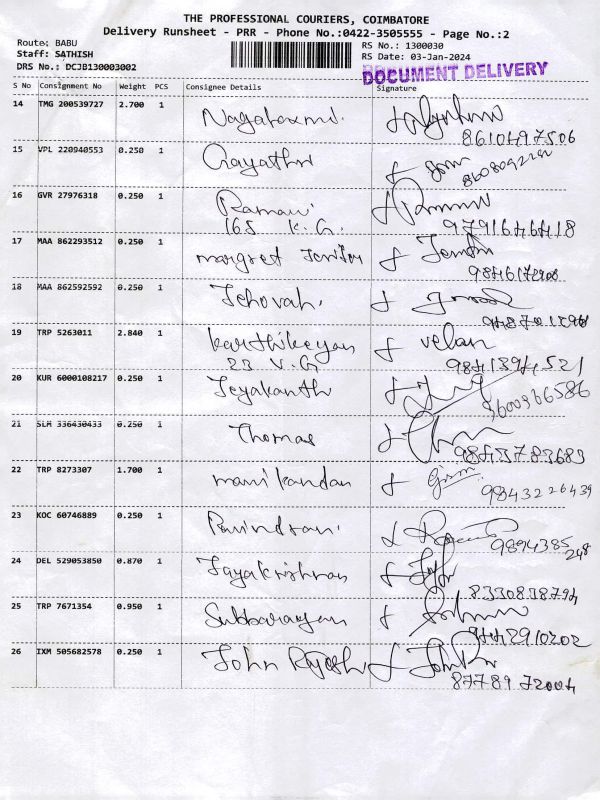 THE PROFESSIONAL COURIERS, COIMBATORE
Delivery Runsheet - PRR - Phone No.:0422-3505555 - Page No.:2
Route: BABU
Staff: SATHISH
DRS No.: DCJB130003002
RS No.: 1300030
RS Date: 03-Jan-2024
DOCUMENT DELIVERY
S No Consignment No Weight PCS Consignee Details Signature
14 TMG 200539727 2.700 1 Nagalaxmi.
8610497506
15 VPL 220940553 0.250 1 Gayathri
16 GVR 27976318 0.250 1 Ramani
165 K.G. 9791646418
17 MAA 862293512 0.250 1 margret Jenifer
18 MAA 862592592 0.250 1 Jehovah.
19 TRP 5263011 2.840 1 karthikeyan velan
23 V.G 9841394521
20 KUR 6000108217 0.250 1 Jeyakanth
3600966586
21 SLM 336430433 0.250 1 Thomas
9843783683
22 TRP 8273307 1.700 1 manikandan
9843226439
23 KOC 60746889 0.250 1 Ravindran.
9894385
248
24 DEL 529053850 0.870 1 Jayakrishnan
8330838794
25 TRP 7671354 0.950 1 Subbarayan
9442910202
26 IXM 505682578 0.250 1 John Rajesh
8778972004